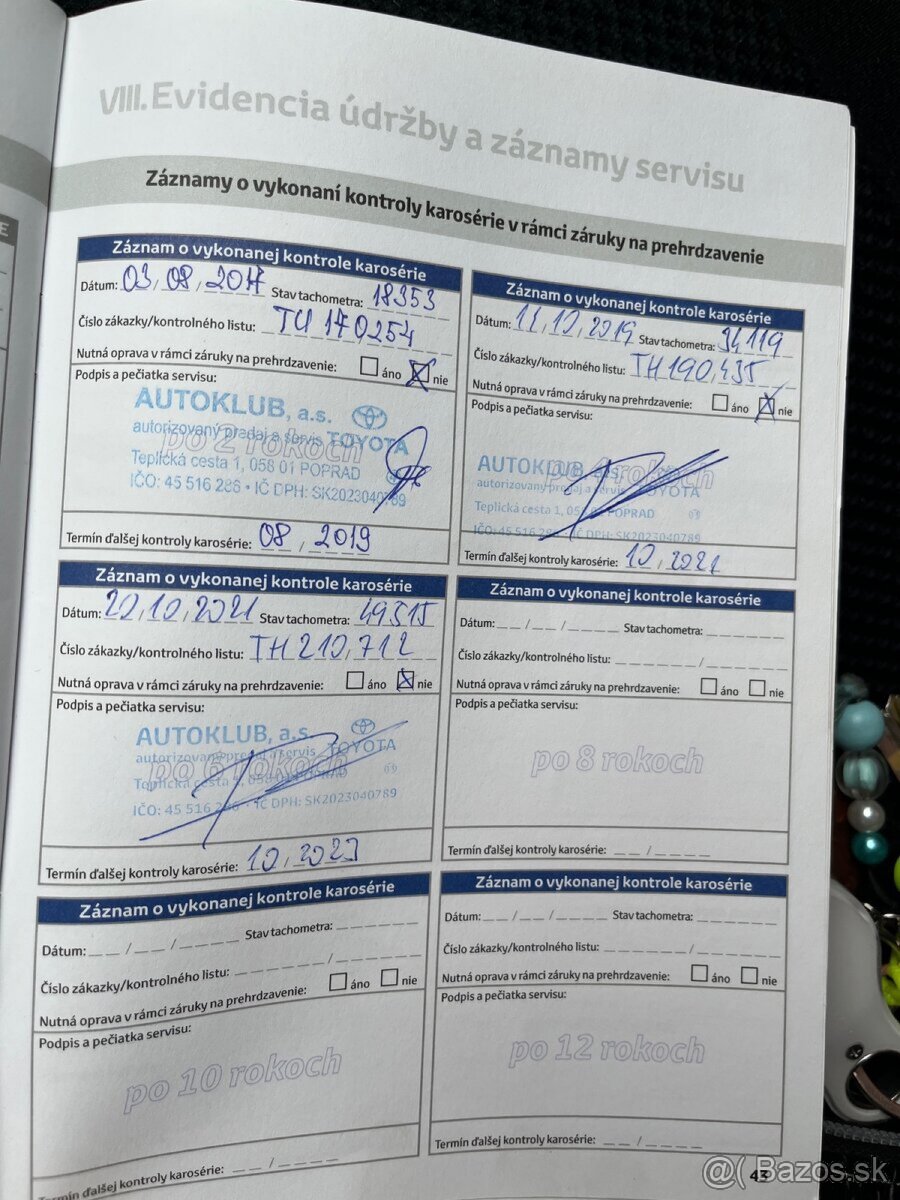 VIII. Evidencia údržby a záznamy servisu
Záznamy o vykonaní kontroly karosérie v rámci záruky na prehrdzavenie
E
Záznam o vykonanej kontrole karosérie
Dátum: 03, 08, 2017 Stav tachometra: 18353
Číslo zákazky/kontrolného listu: TU 170254
Nutná oprava v rámci záruky na prehrdzavenie: áno nie
Podpis a pečiatka servisu:
po 2 rokoch
AUTOKLUB, a.s.
autorizovaný predaj a servis TOYOTA
Teplická cesta 1, 058 01 POPRAD
IČO: 45 516 286 • IČ DPH: SK2023040789
Termín ďalšej kontroly karosérie: 08 / 2019
Záznam o vykonanej kontrole karosérie
Dátum: 11, 10, 2019 Stav tachometra: 34119
Číslo zákazky/kontrolného listu: TH190,435
Nutná oprava v rámci záruky na prehrdzavenie: áno nie
Podpis a pečiatka servisu:
po 4 rokoch
AUTOKLUB, a.s.
autorizovaný predaj a servis TOYOTA
Teplická cesta 1, 058 01 POPRAD 69
IČO: 45 516 286 IČ DPH: SK2023040789
Termín ďalšej kontroly karosérie: 10, 2021
Záznam o vykonanej kontrole karosérie
Dátum: 20, 10, 2021 Stav tachometra: 49515
Číslo zákazky/kontrolného listu: TH210,712
Nutná oprava v rámci záruky na prehrdzavenie: áno nie
Podpis a pečiatka servisu:
po 6 rokoch
AUTOKLUB, a.s.
autorizovaný predaj a servis TOYOTA
Teplická cesta 1, 058 01 POPRAD 69
IČO: 45 516 286 • IČ DPH: SK2023040789
Termín ďalšej kontroly karosérie: 10, 2023
Záznam o vykonanej kontrole karosérie
Dátum: __ / __ / ____ Stav tachometra:
Číslo zákazky/kontrolného listu: /
Nutná oprava v rámci záruky na prehrdzavenie: áno nie
Podpis a pečiatka servisu:
po 8 rokoch
Termín ďalšej kontroly karosérie: __ / ____
Záznam o vykonanej kontrole karosérie
Dátum: __ / __ / ____ Stav tachometra:
Číslo zákazky/kontrolného listu: /
Nutná oprava v rámci záruky na prehrdzavenie: áno nie
Podpis a pečiatka servisu:
po 10 rokoch
Termín ďalšej kontroly karosérie: __ / ____
Záznam o vykonanej kontrole karosérie
Dátum: __ / __ / ____ Stav tachometra:
Číslo zákazky/kontrolného listu: /
Nutná oprava v rámci záruky na prehrdzavenie: áno nie
Podpis a pečiatka servisu:
po 12 rokoch
Termín ďalšej kontroly karosérie: __ / ____
43
@( Bazos.sk